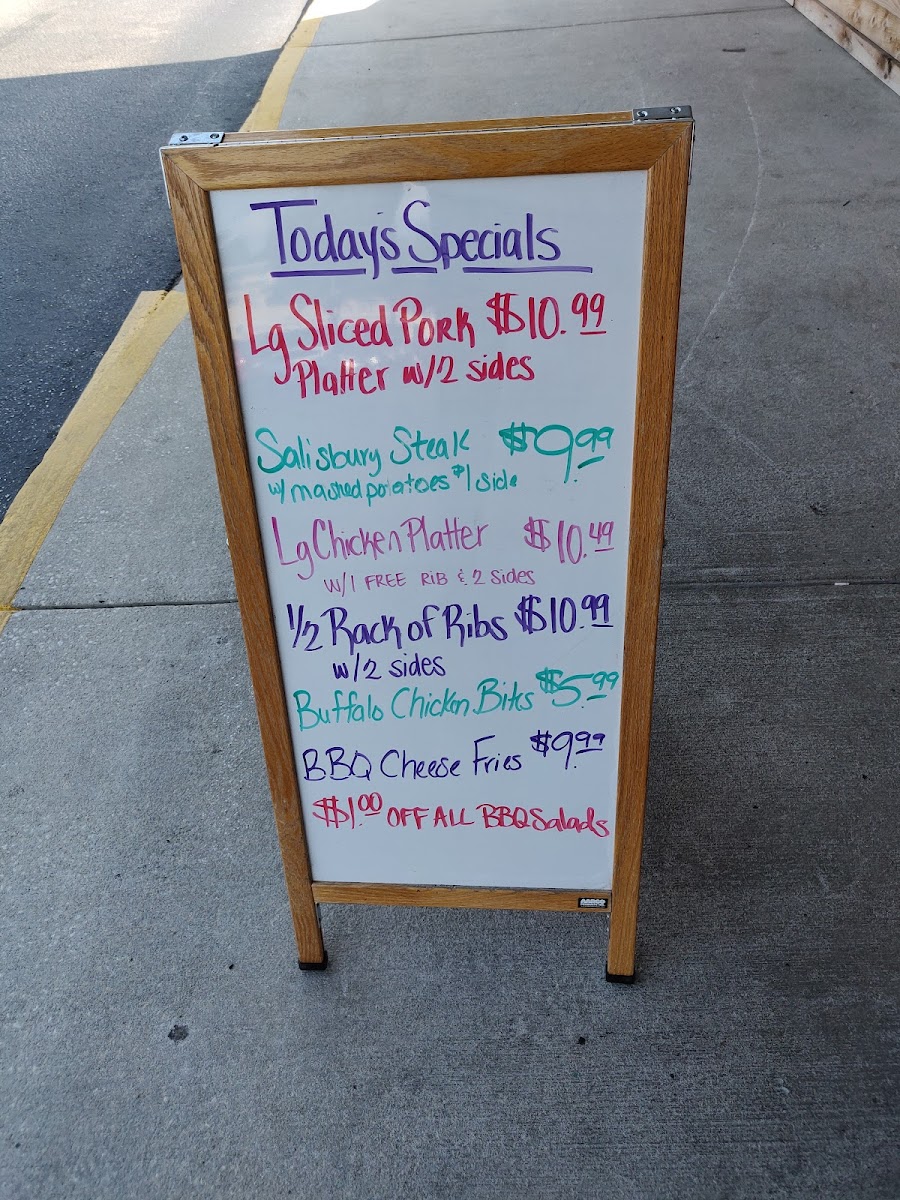 Today's Specials
Lg Sliced Pork $10.99
Platter w/2 sides
Salisbury Steak $9.99
w/ mashed potatoes $1 side
Lg Chicken Platter $10.49
w/1 FREE RIB & 2 sides
1/2 Rack of Ribs $10.99
w/2 sides
Buffalo Chicken Bites $5.99
BBQ Cheese Fries $9.99
$1.00 OFF ALL BBQ Salads
AARCO